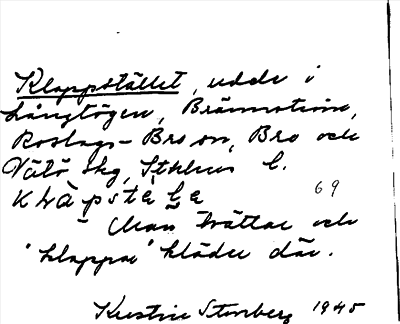 Klappstället, udde i
Långtögen, Brännström,
Roslags-Bro sn, Bro och
Vätö skg, Sthlms l.
69
Man tvättar och
"klappar" kläder där.
Kerstin Stonberg 1945